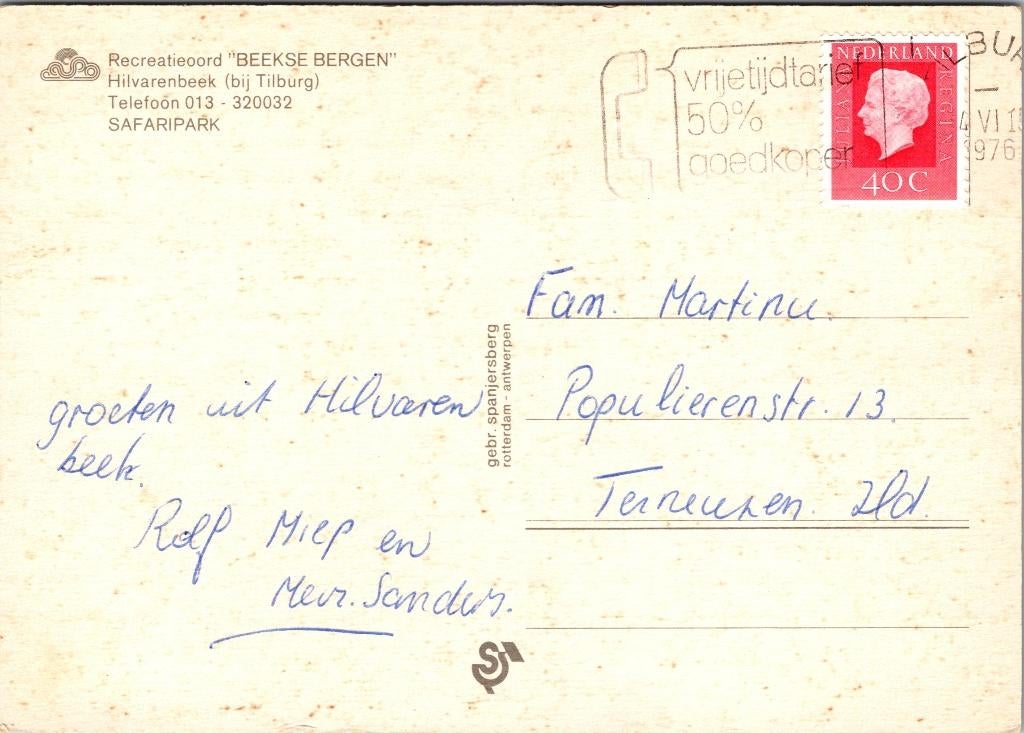 Recreatieoord "BEEKSE BERGEN"
Hilvarenbeek (bij Tilburg)
Telefoon 013 - 320032
SAFARIPARK
vrijetijdtarief
50%
goedkoper
NEDERLAND
JULIANA REGINA
40 C
4 VI
1976
Fam. Martinu.
Populierenstr. 13.
Terneuzen. Zld.
gebr. spanjersberg
rotterdam - antwerpen
groeten uit Hilvaren
beek.
Rolf Miep en
Mevr. Sanders.